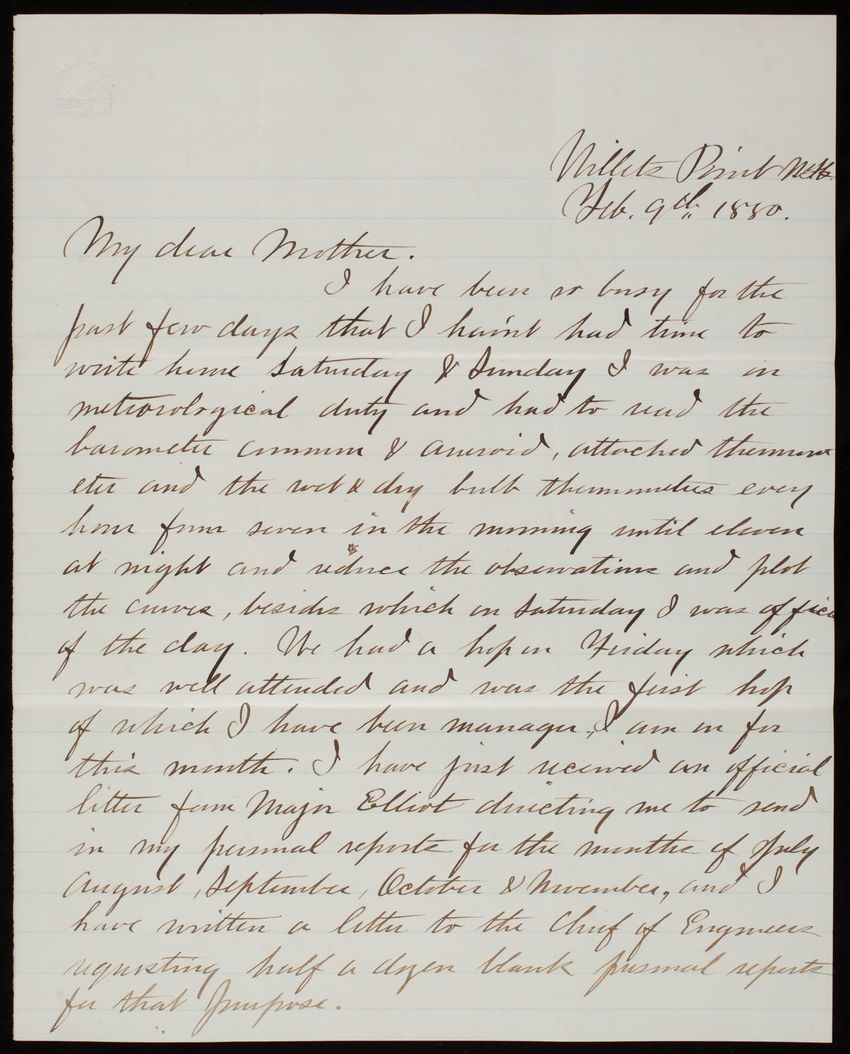 Willets Point
Feb. 9th 1880.
My dear Mother.
I have been so busy for the
past few days that I havn't had time to
write home Saturday & Sunday I was on
meteorological duty and had to read the
barometer common & aneroid, attached thermom
eter and the wet & dry bulb thermometers every
hour from seven in the morning until eleven
at night and reduce the observations and plot
the curves, besides which on Saturday I was officer
of the day. We had a hop on Friday which
was well attended and was the first hop
of which I have been manager, I am on for
this month. I have just received an official
letter from Major Elliot directing me to send
in my personal reports for the months of July
August, September, October & November, and I
have written a letter to the Chief of Engineers
requesting half a dozen blank personal reports
for that purpose.